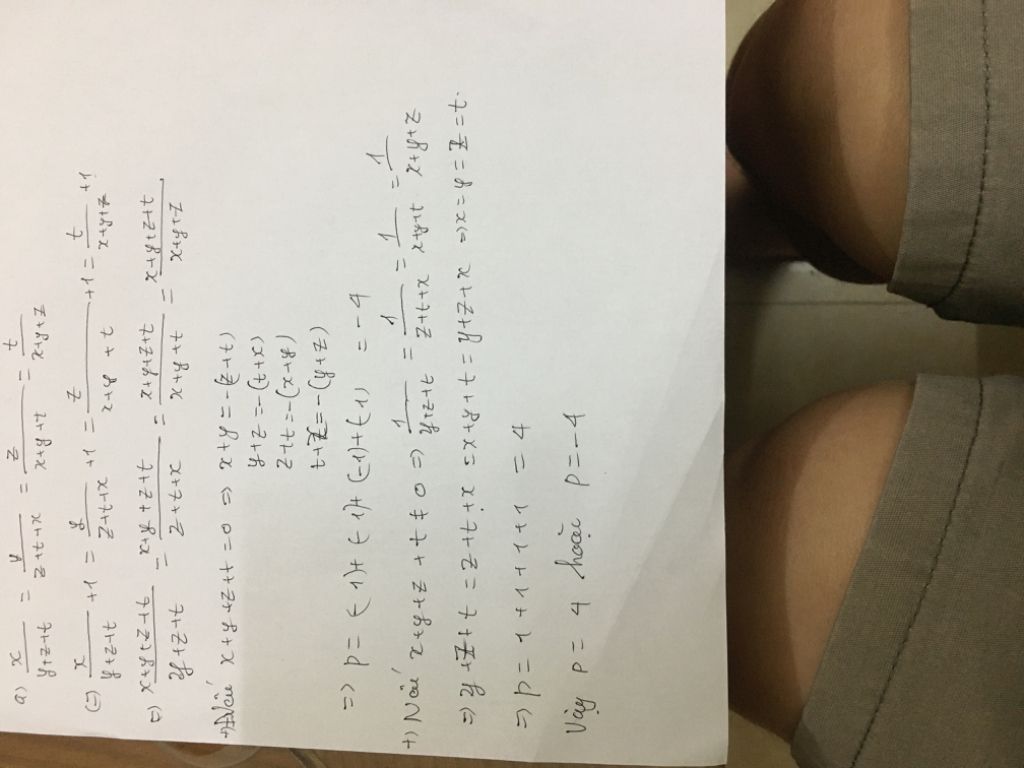 a) x/(y+z+t) = y/(z+t+x) = z/(x+y+t) = t/(x+y+z)
(=) x/(y+z+t) +1 = y/(z+t+x) +1 = z/(x+y+t) +1 = t/(x+y+z) +1
(=) (x+y+z+t)/(y+z+t) = (x+y+z+t)/(z+t+x) = (x+y+z+t)/(x+y+t) = (x+y+z+t)/(x+y+z)
+) Nếu x+y+z+t=0 => x+y=-(z+t)
y+z=-(t+x)
z+t=-(x+y)
t+z=-(y+z)
=> p = (-1)+(-1)+(-1)+(-1) = -4
+) Nếu x+y+z+t≠0 => 1/(y+z+t) = 1/(z+t+x) = 1/(x+y+t) = 1/(x+y+z)
=> y+z+t = z+t+x = x+y+t = y+z+x => x=y=z=t.
=> p = 1+1+1+1 = 4
Vậy p = 4 hoặc p=-4